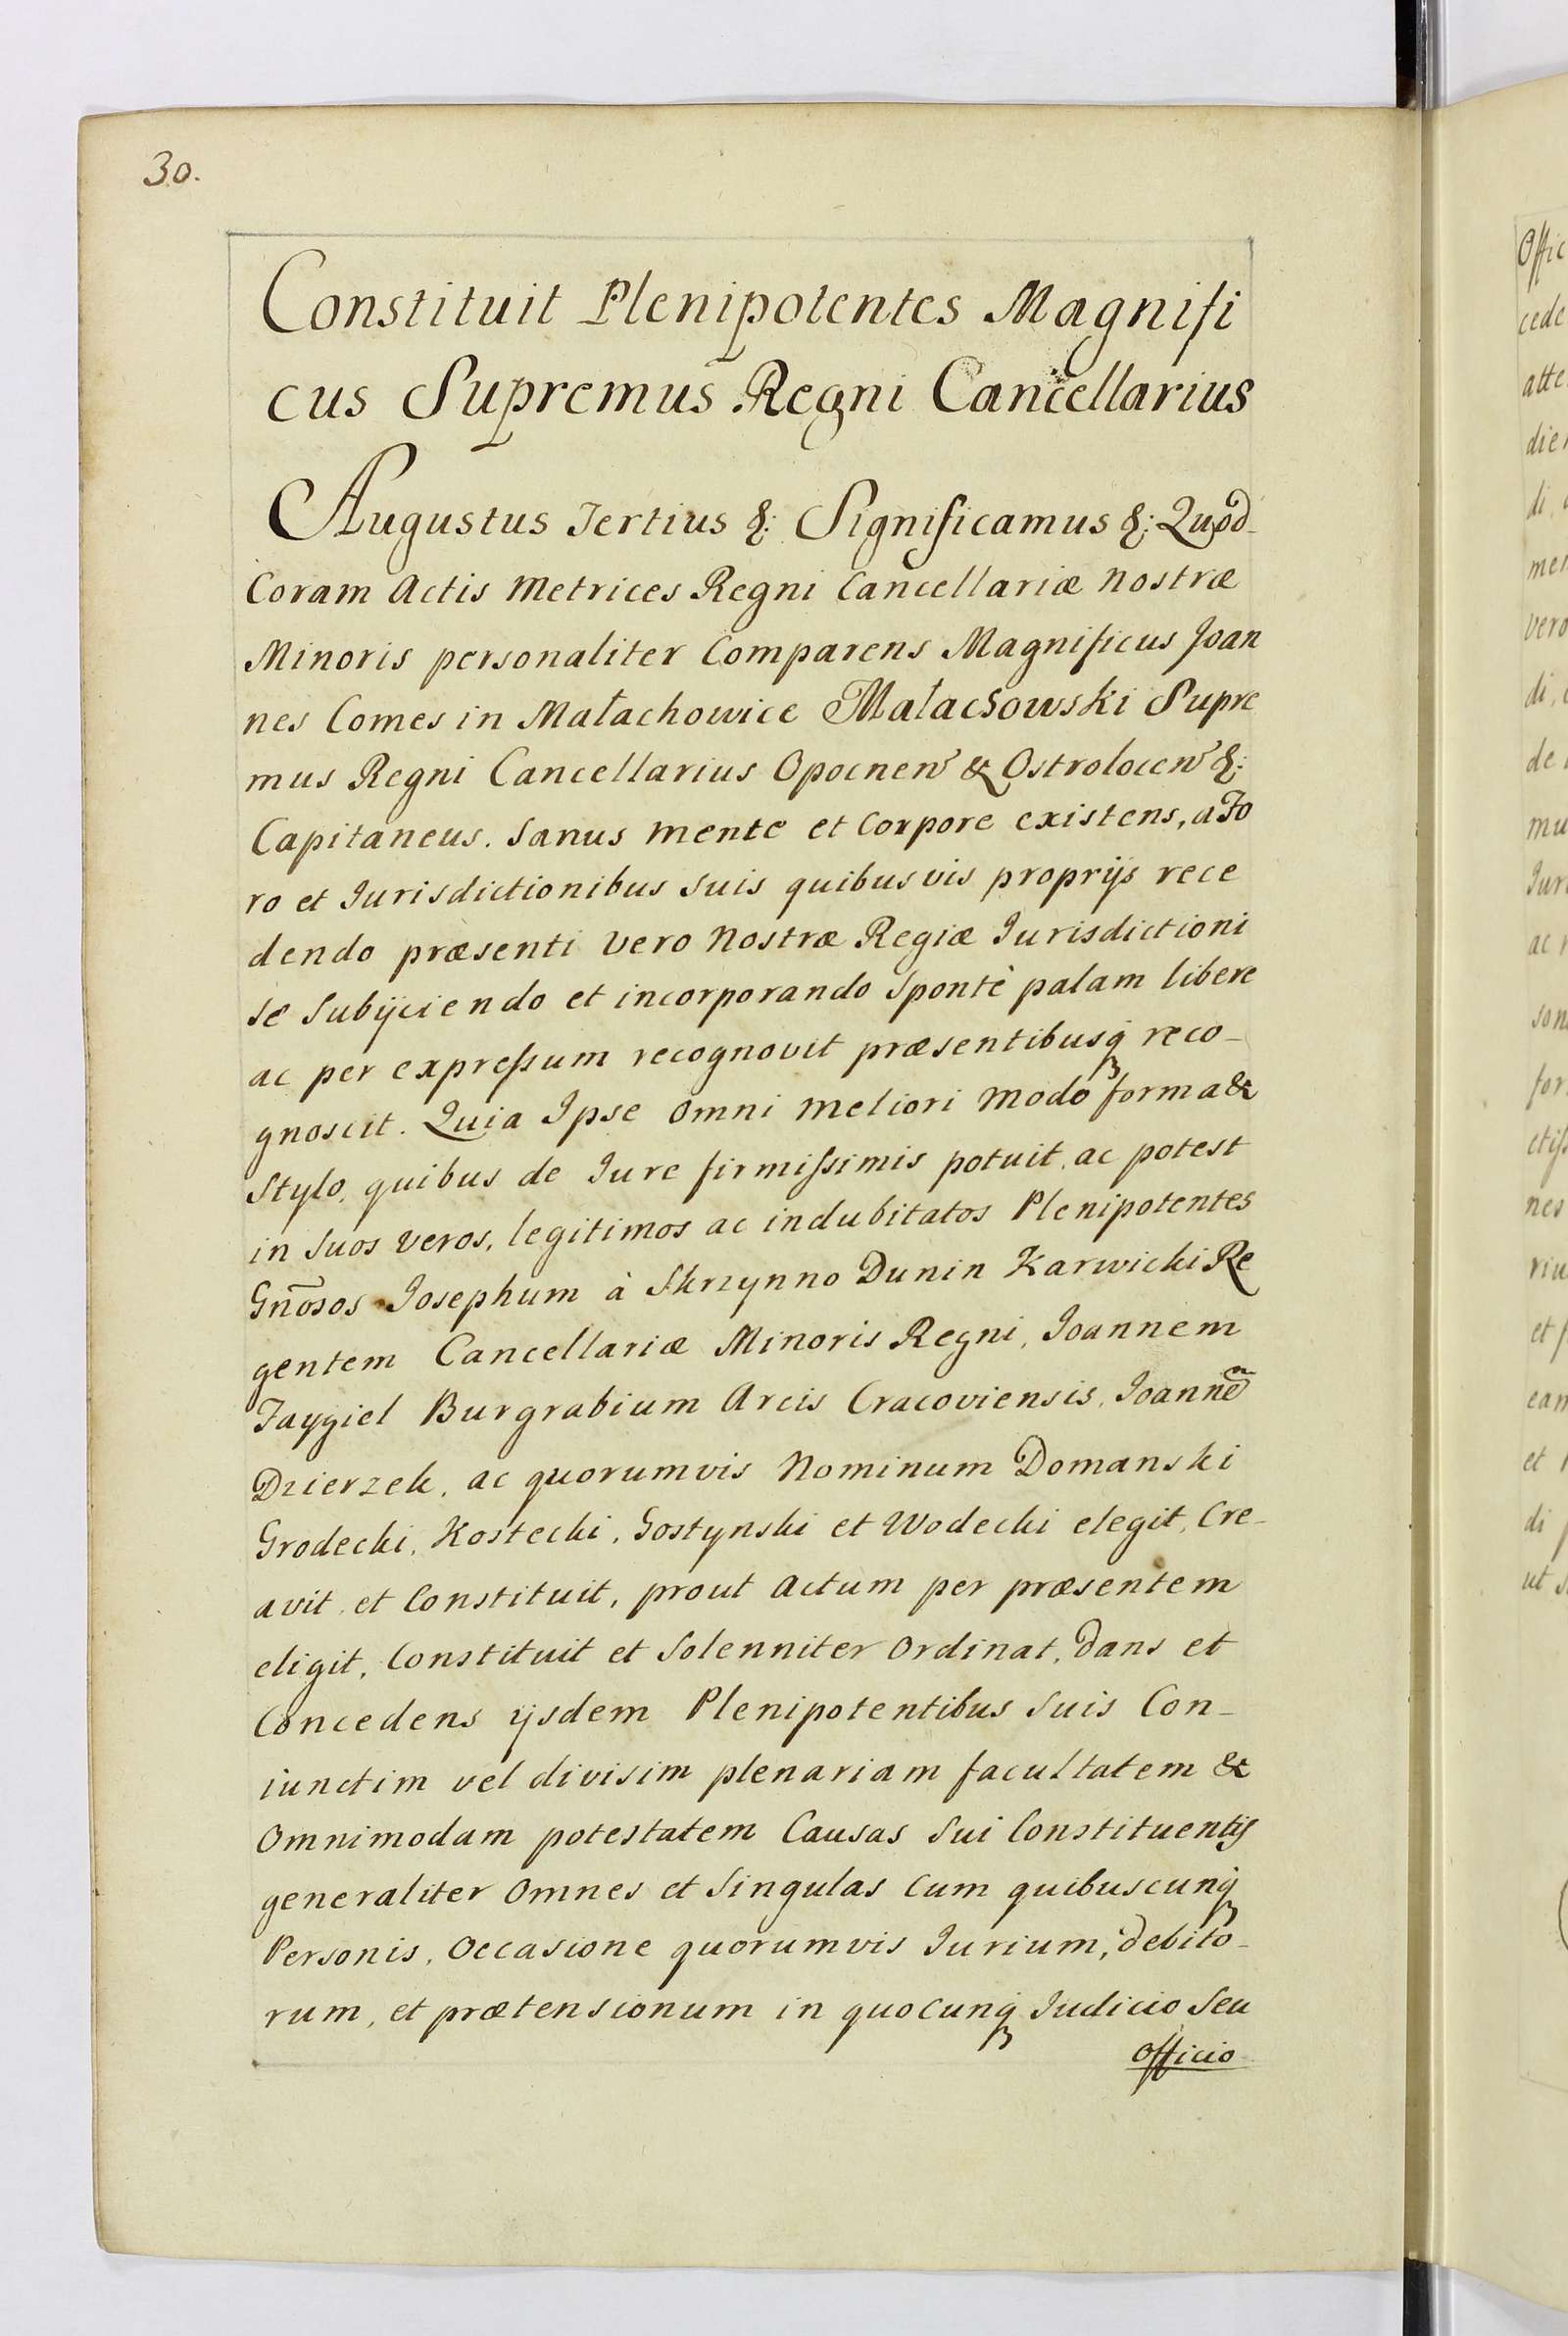 30.
Constituit Plenipotentes Magnifi
cus Supremus Regni Cancellarius
Augustus Tertius &: Significamus &: Quod
Coram Actis Metrices Regni Cancellariæ Nostræ
Minoris personaliter Comparens Magnificus Joan
nes Comes in Małachowice Małachowski Supre
mus Regni Cancellarius Opocnen̄ & Ostrolocen̄ &:
Capitaneus. Sanus mente et Corpore existens, a Fo
ro et Iurisdictionibus suis quibusvis proprijs rece
dendo præsenti vero Nostræ Regiæ Iurisdictioni
se Subijciendo et incorporando Spontè palam libere
ac per expreſsum recognovit præsentibusq́ꝫ reco-
gnoscit. Quia Ipse Omni meliori Modo forma &
Stylo, quibus de Iure firmiſsimis potuit, ac potest
in Suos veros, legitimos ac indubitatos Plenipotentes
Gn̄osos Iosephum à Skrzynno Dunin Karwicki Re
gentem Cancellariæ Minoris Regni, Ioannem
Taygiel Burgrabium Arcis Cracoviensis, Ioannem̄
Dzierzek, ac quorumvis Nominum Domanski
Grodecki, Kostecki, Gostynski et Wodecki elegit, Cre-
avit, et Constituit, prout Actum per præsentem
eligit, Constituit et Solenniter Ordinat, Dans et
Concedens ijsdem Plenipotentibus Suis Con-
iunctim vel divisim plenariam facultatem &
Omnimodam potestatem Causas Sui Constituentis
generaliter Omnes et Singulas Cum quibuscunq́ꝫ
Personis, Occasione quorumvis Iurium, debito-
rum, et prætensionum in quocunq́ꝫ Iudicio Seu
Officio
Offic
cede
atte
di
mer
vero
di
de
mu
Iur
ac
son
for
nes
riu
et
eam
et
di
ut